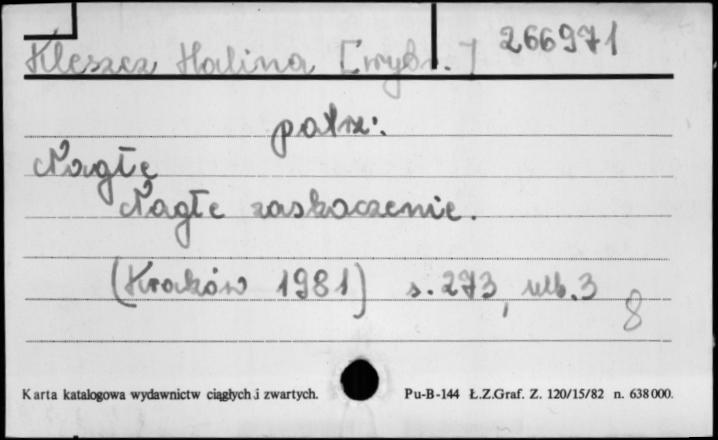 Kleszcz Halina [wybr.] 266971
patrz:
Nagłe
Nagłe zaskoczenie.
(Kraków 1981) s. 273, nlb. 3
8
Karta katalogowa wydawnictw ciągłych i zwartych. Pu-B-144 Ł.Z.Graf. Z. 120/15/82 n. 638000.